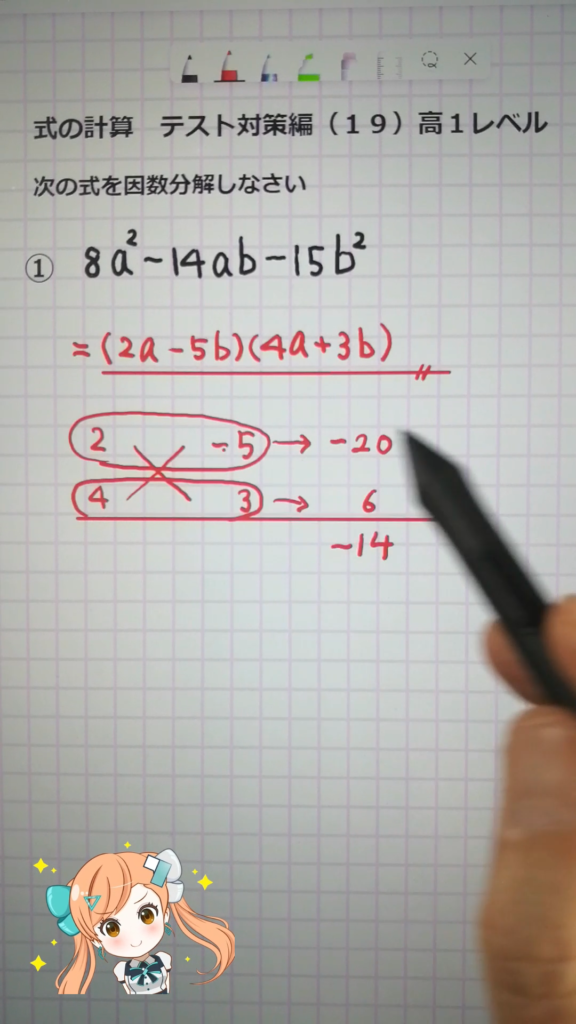 式の計算　テスト対策編（１９）高１レベル
次の式を因数分解しなさい
① 8a²-14ab-15b²
=(2a-5b)(4a+3b)
2 -5 → -20
4 3 → 6
-14